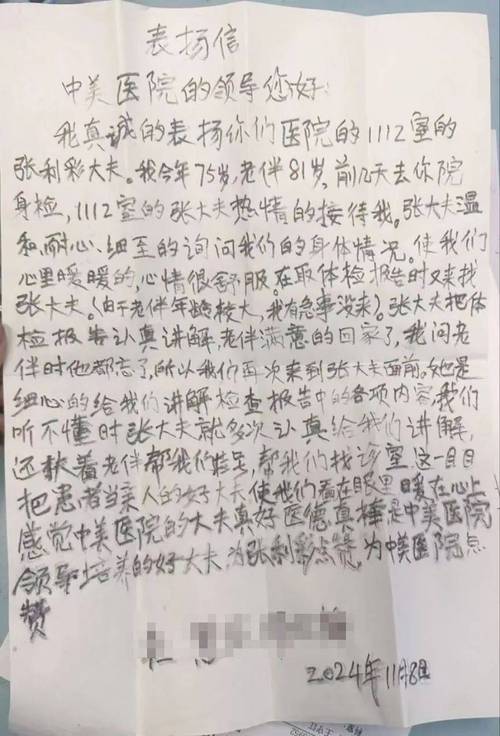 表扬信
中美医院的领导您好:
我真诚的表扬你们医院的1112室的
张利彩大夫。我今年75岁,老伴81岁,前几天去你院
身检,1112室的张大夫热情的接待我。张大夫温
和、耐心、细至的询问我们的身体情况。使我们
心里暖暖的,心情很舒服。在取体检报告时又来找
张大夫。(由于老伴年龄较大,我有急事没来)。张大夫把体
检报告认真讲解,老伴满意的回家了,我问老
伴时他都忘了,所以我们再次来到张大夫面前。她是
细心的给我们讲解检查报告中的各项内容,我们
听不懂时张大夫就多次认真给我们讲解,
还扶着老伴帮我们挂号,帮我们找诊室这一目目
把患者当亲人的好大夫使我们看在眼里暖在心上
感觉中美医院的大夫真好医德真棒是中美医院
领导培养的好大夫为张利彩点赞,为中美医院点
赞
2024年11月8日